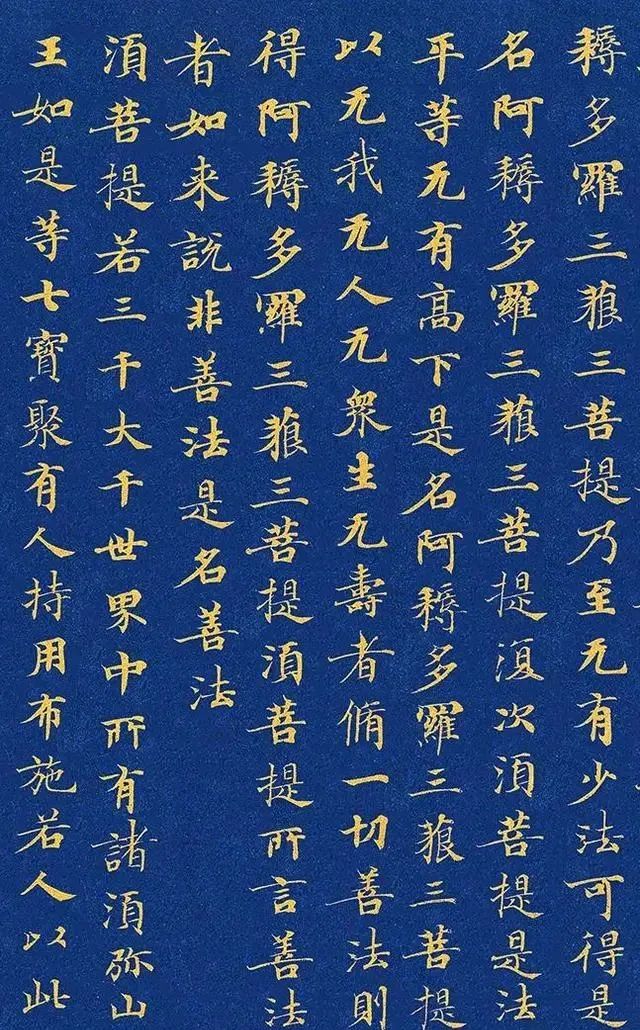 耨多羅三藐三菩提乃至无有少法可得是
名阿耨多羅三藐三菩提復次須菩提是法
平等无有高下是名阿耨多羅三藐三菩提
以无我无人无衆生无壽者脩一切善法則
得阿耨多羅三藐三菩提須菩提所言善法
者如来說非善法是名善法
須菩提若三千大千世界中所有諸須弥山
王如是等七寳聚有人持用布施若人以此